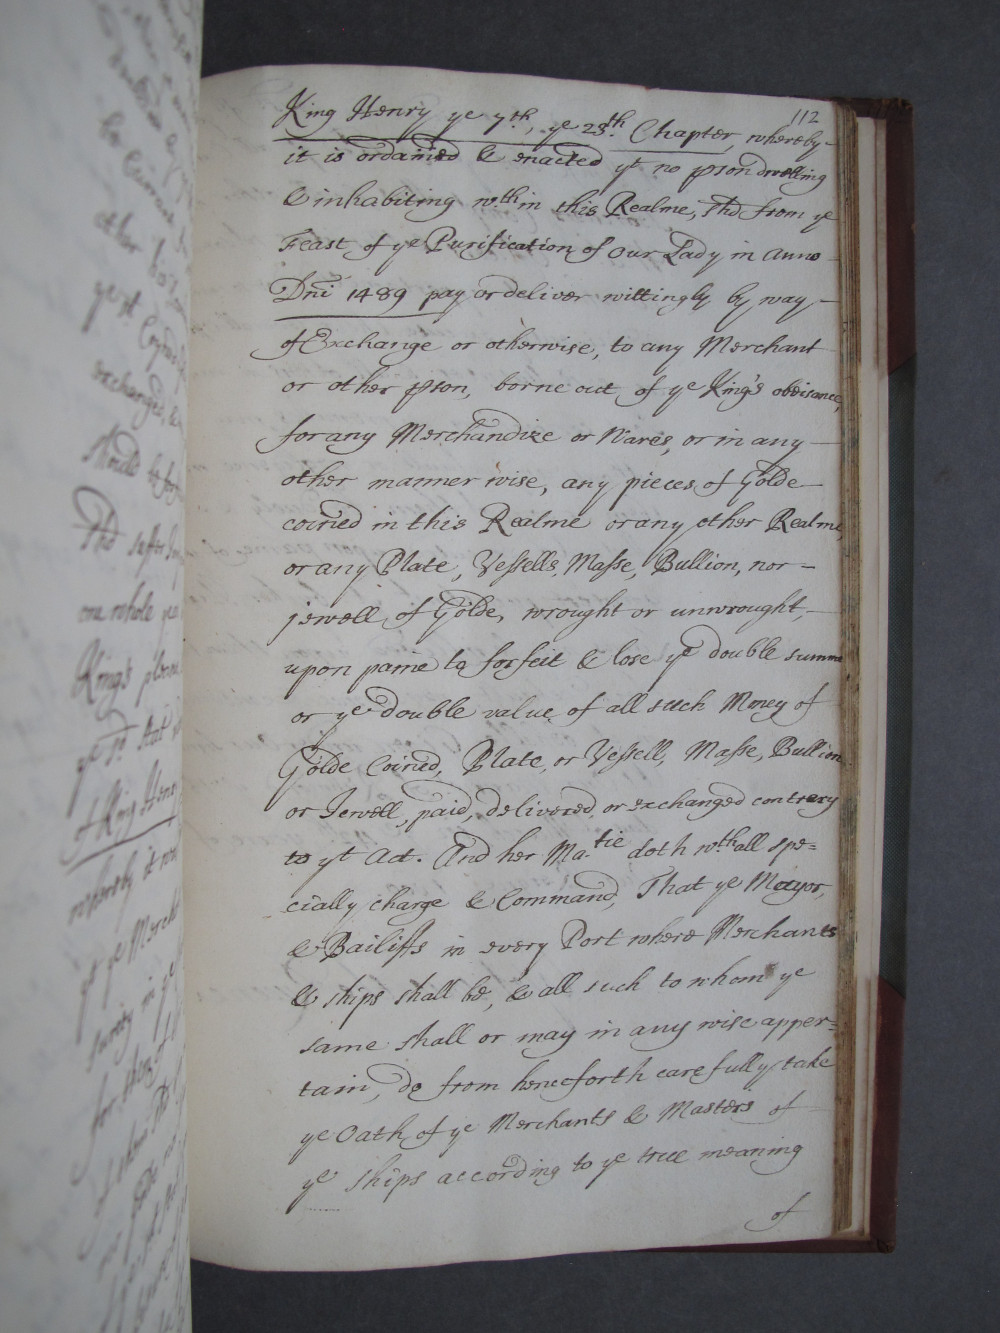 112
King Henry ye 7th, ye 23th Chapter, whereby
it is ordained & enacted yt no pson dwelling
& inhabiting wthin this Realme, shd from ye
Feast of ye Purification of our Lady in Anno
Dni 1489 pay or deliver wittingly by way
of Exchange or otherwise, to any Merchant
or other pson, borne out of ye King's obeisance,
for any Merchandize or Wares, or in any
other manner wise, any pieces of Golde
coined in this Realme or any other Realme,
or any Plate, Vessells, Masse, Bullion, nor
jewell of Golde, wrought or unwrought,
upon paine to forfeit & lose ye double summe
or ye double value of all such Money of
Golde Coined, Plate, or Vessell, Masse, Bullion
or Jewell, paid, delivered, or exchanged contrary
to yt Act. And her Ma.tie doth wthall spe=
cially charge & Command, That ye Mayor,
& Bailiffs in every Port where Merchants
& ships shall be, & all such to whom ye
same shall or may in any wise apper=
tain, do from henceforth carefully take
ye Oath of ye Merchants & Masters of
ye ships according to ye true meaning
of
other
exchanged,
one whole
King's
of King Henry
whereby it
yt ye Merch
surety in ye